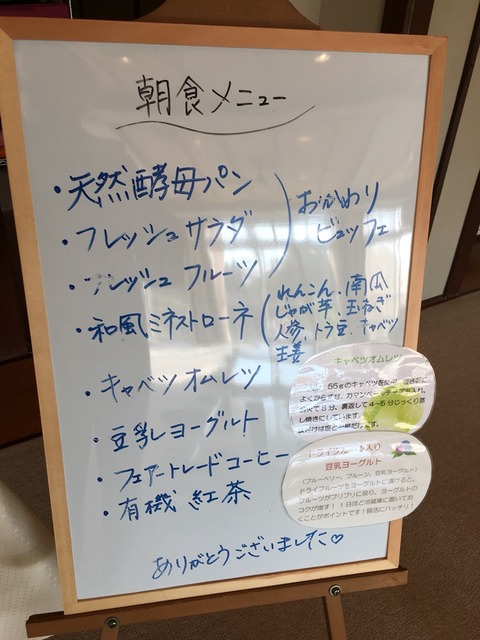 朝食メニュー
・天然酵母パン
・フレッシュサラダ
・フレッシュフルーツ
おかわり
ビュッフェ
・和風ミネストローネ
(れんこん、南瓜
じゃが芋、玉ねぎ
人参、トラ豆、キャベツ
生姜
・キャベツオムレツ
・豆乳ヨーグルト
・フェアートレードコーヒー
・有機 紅茶
ありがとうございました♡
キャベツオムレツ
55gのキャベツを
よくからませ、カマンベールチーズを入れ、
で8分、裏返して4~5分じっくり蒸
し焼きにしています。
入り
豆乳ヨーグルト
(ブルーベリー、プルーン、豆乳ヨーグルト)
ドライフルーツをヨーグルトに漬けると、
フルーツがプリプリに戻り、ヨーグルトの
コクが増す!1日ほど冷蔵庫に置いてお
くことがポイントです!腸活にバッチリ!